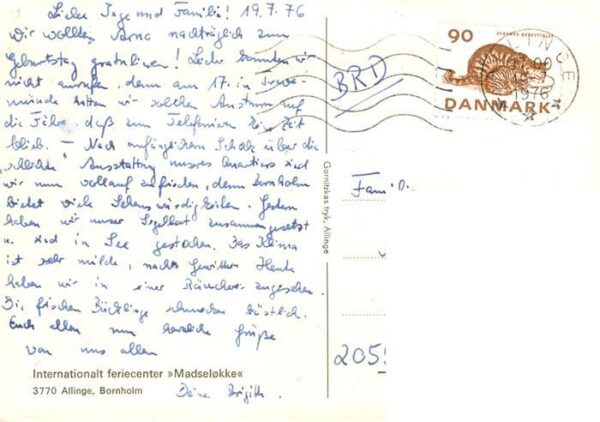 Liebe Inge und Familie! 19.7.76
Wir wollten Arno nachträglich zum
Geburtstag gratulieren! Leider konnten wir
nicht anrufen, denn am 17. in Trave-
münde hatten wir solchen Ansturm auf
die Fähre, daß zum Telefonieren keine Zeit
blieb. – Nach anfänglichem Schock über die
"schlichte" Ausstattung unseres Quartiers sind
wir nun vollauf zufrieden, denn Bornholm
bietet viele Sehenswürdigkeiten. Gestern
haben wir unser Segelboot zusammengesetzt
u. sind in See gestochen. Das Klima
ist sehr milde, nachts Gewitter. Heute
haben wir in einer Räucherei zugesehen.
Die frischen Bücklinge schmecken köstlich.
Euch allen nun herzliche Grüße
von uns allen
Deine Brigitte
Internationalt feriecenter »Madseløkke«
3770 Allinge, Bornholm
Gornitzkas tryk, Allinge
BRD
90
DYRENES BESKYTTELSE
DANMARK
ALLINGE
1976
Fam
205